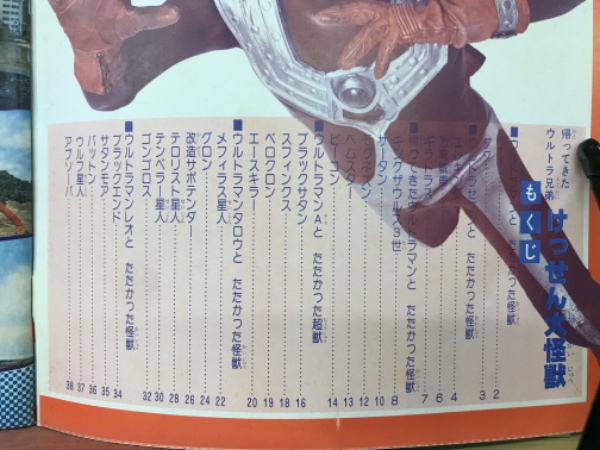 帰ってきた
ウルトラ兄弟
けっせん大怪獣
もくじ
たたかった怪獣
2
3
たたかった怪獣
4
6
7
たたかった怪獣
8
キングザウルス3世
10
サータン
12
13
ベムスター
14
ビーコン
■ウルトラマンAと たたかった超獣
16
ブラックサタン
18
スフィンクス
19
ベロクロン
20
エースキラー
■ウルトラマンタロウと たたかった怪獣
22
メフィラス星人
24
グロン
26
改造サボテンダー
28
テロリスト星人
30
テンペラー星人
32
ゴンゴロス
■ウルトラマンレオと たたかった怪獣
34
ブラックエンド
35
サタンモア
36
バットン
37
ウルフ星人
38
アブソーバ